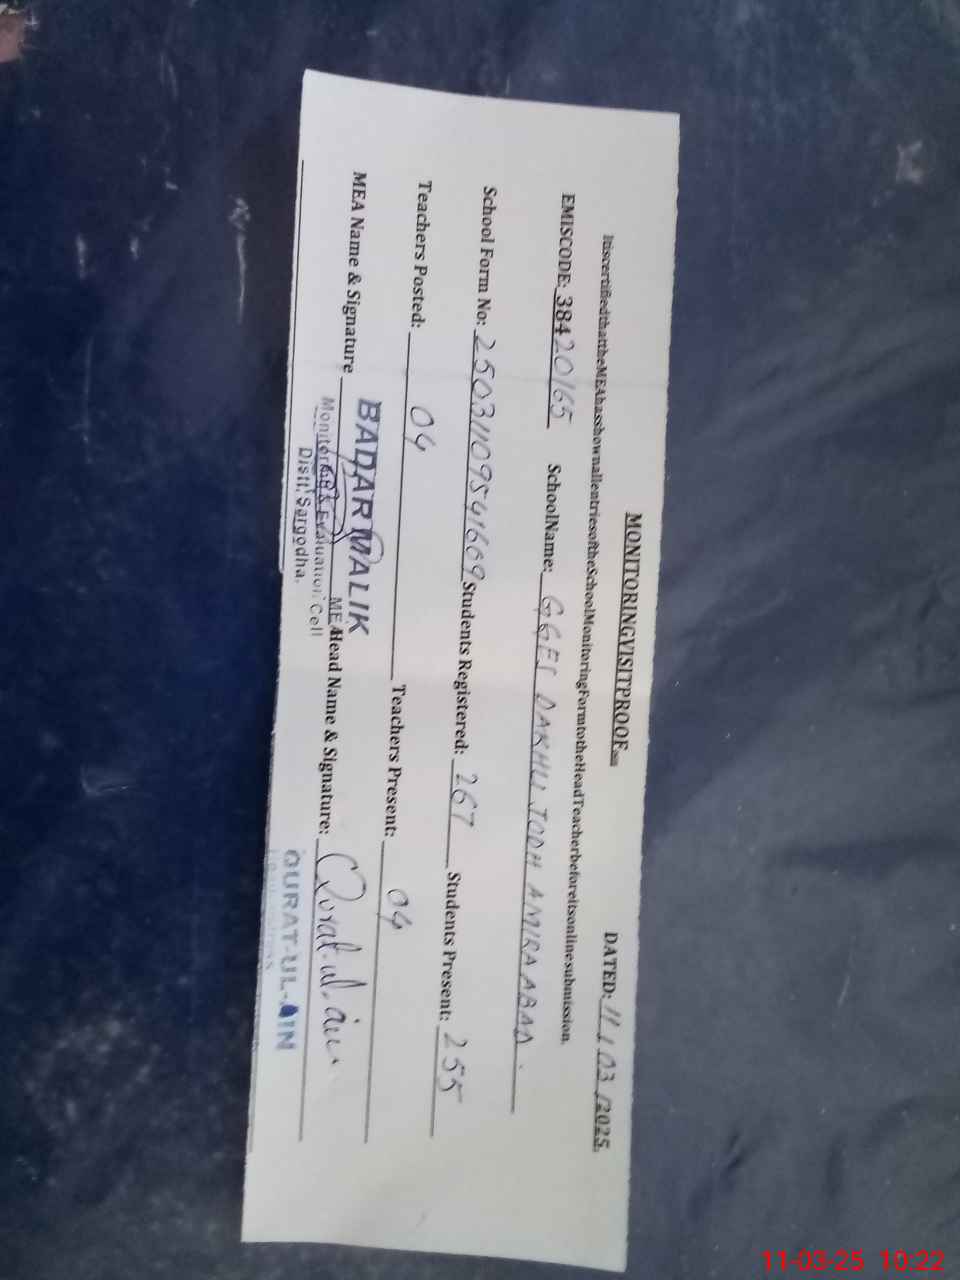 MONITORINGVISITPROOF
DATED: 11 / 03 /2025.
ItiscertifiedthattheMEAhasshownallentriesoftheSchoolMonitoringFormtotheHeadTeacherbeforeitsonlinesubmission.
EMISCODE: 38420165 SchoolName: GGES DAKHU JODH AMIRAABAD.
School Form No: 25031109541609 Students Registered: 267 Students Present: 255
Teachers Posted: 04 Teachers Present: 04
MEA Name & Signature BADAR MALIK Head Name & Signature: Qurat-ul-ain
Monitoring & Evaluation Cell
Distt. Sargodha.
QURAT-UL-AIN
11-03-25 10:22